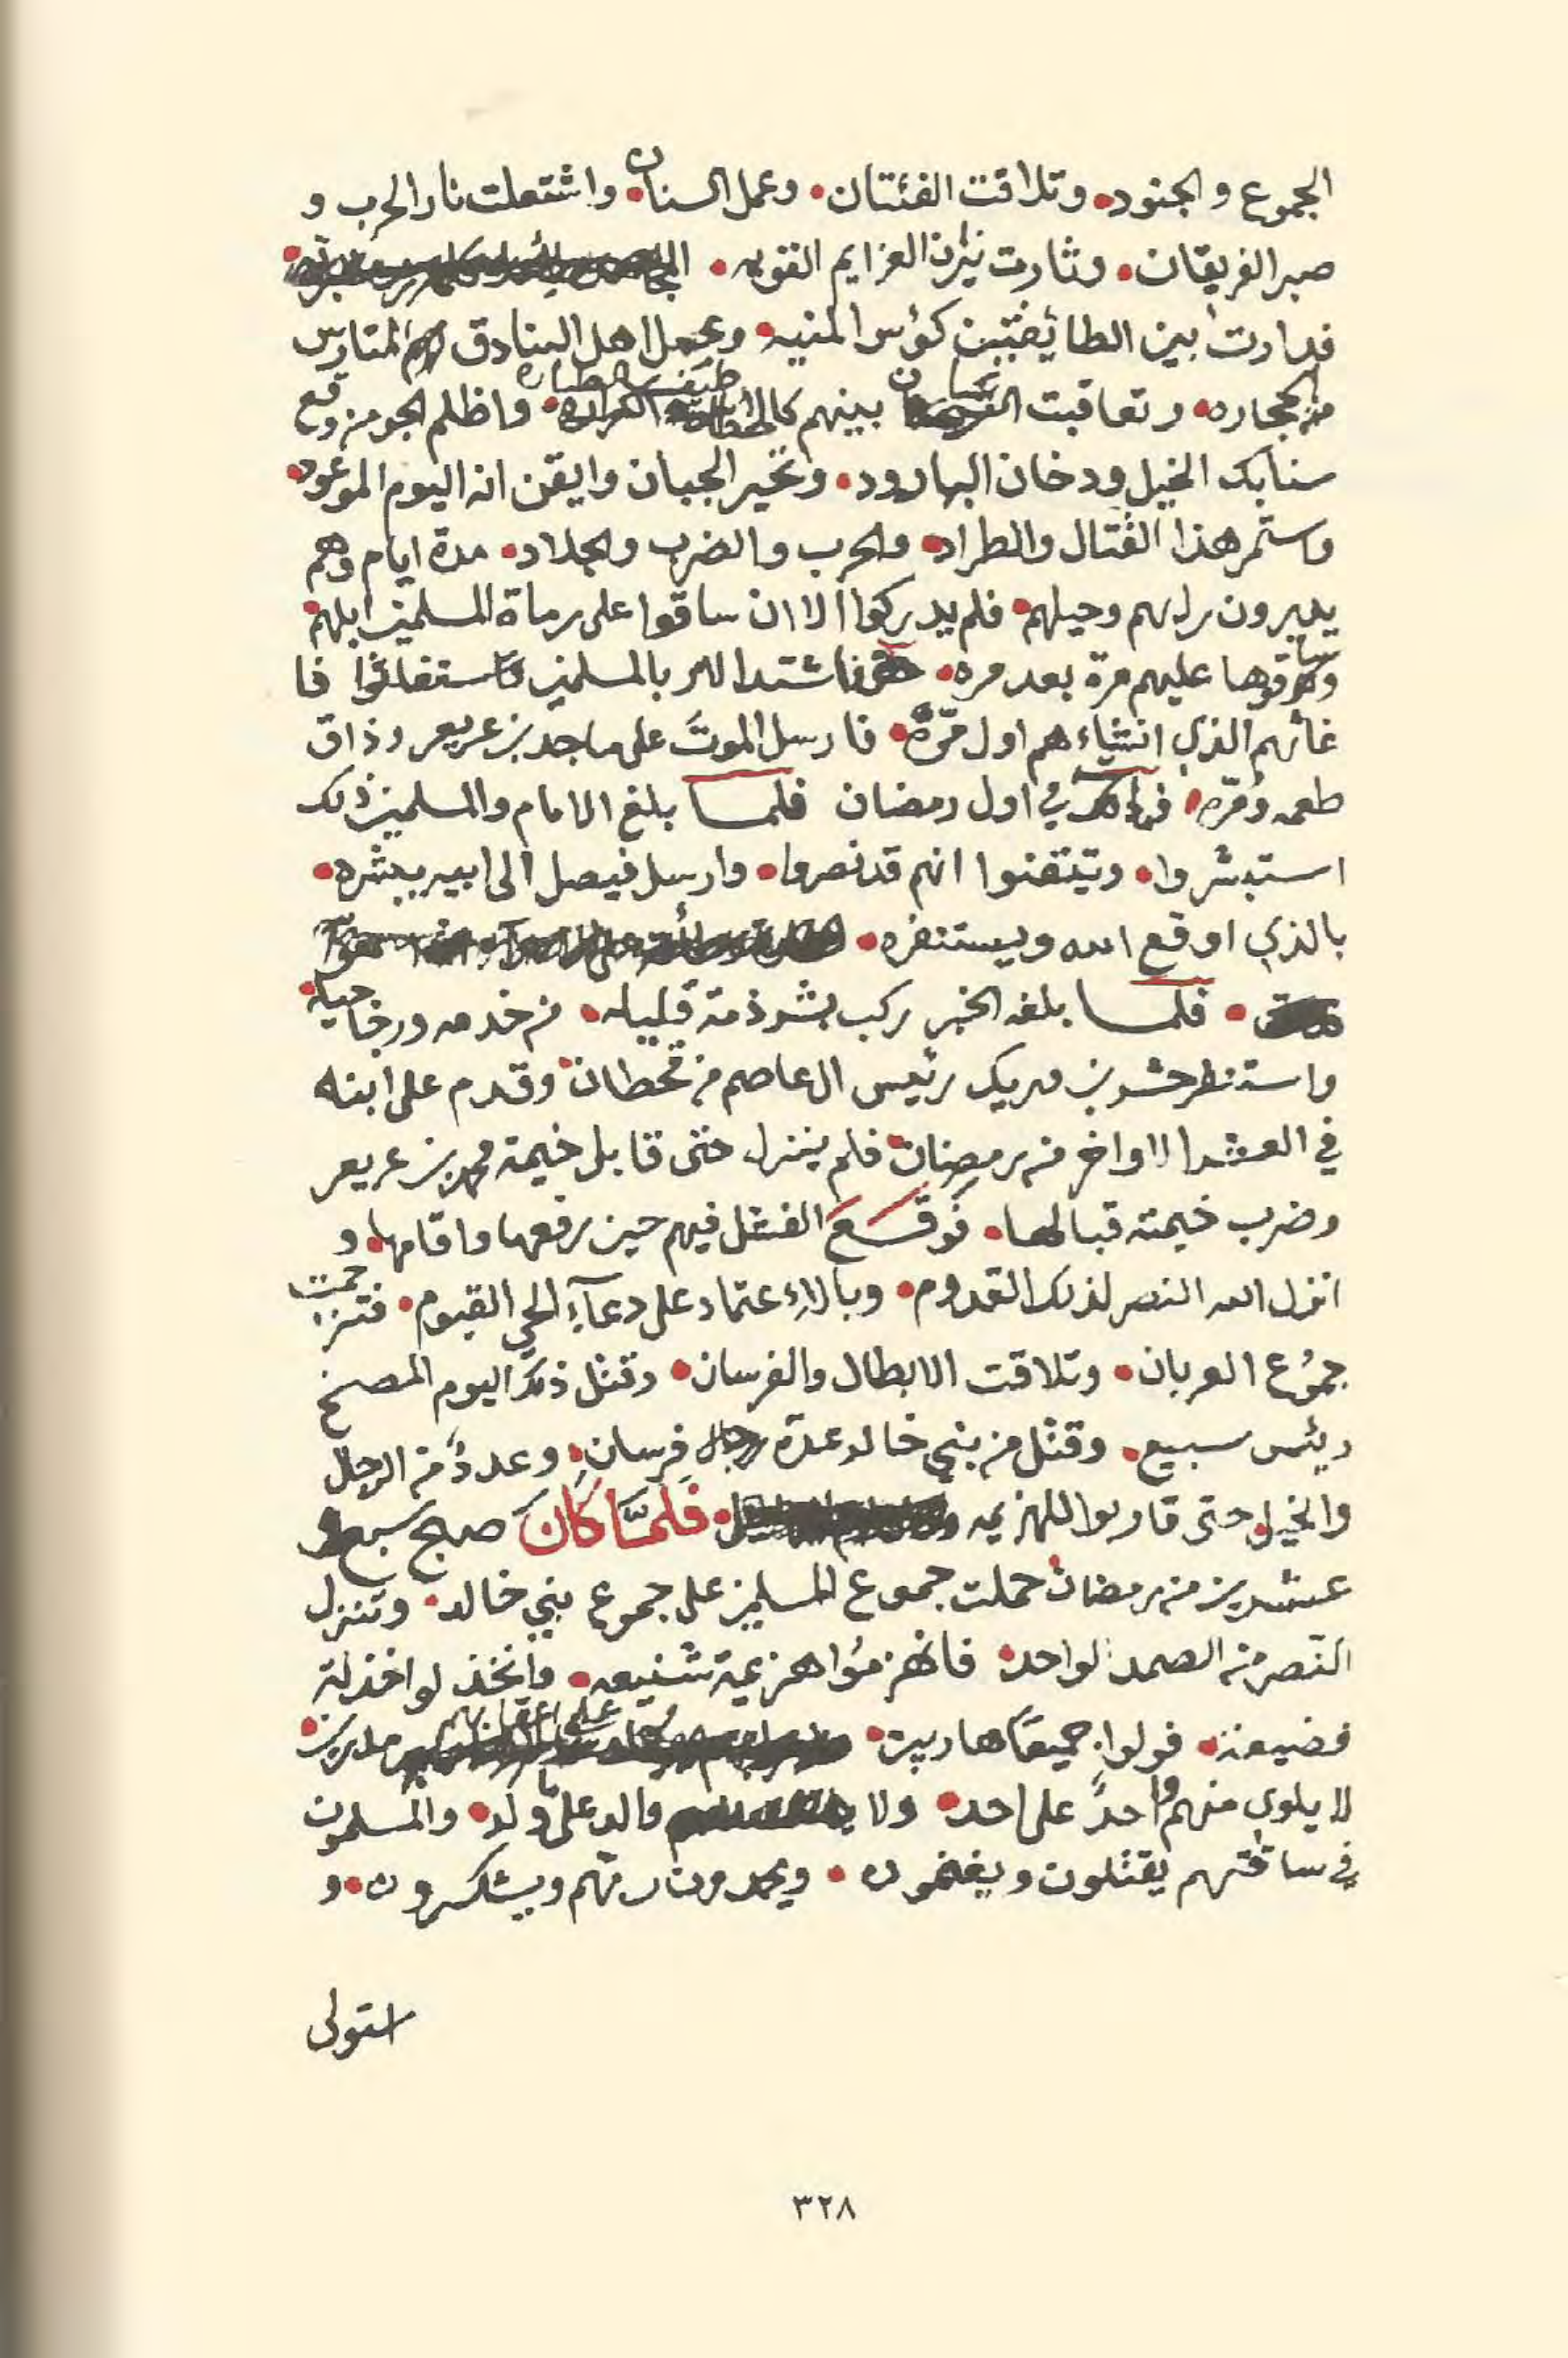 الجموع والجنود • وتلاقت الفئتان • وعمل السنان • واشتعلت نار الحرب و
صبر الفريقان • وثارت نيران العزايم القويه •
فدارت بين الطائفتين كؤس المنيه • وعمل اهل البنادق لهم المتارس
من الحجاره • وتعاقبت الفرسان بينهم كا واظلم الجو من وقع
سنابك الخيل ودخان البارود • وتحير الجبان وايقن انه اليوم الموعود •
واستمر هذا القتال والطراد • والحرب والضرب والجلاد • مدة ايام وهم
يديرون رايهم وحيلهم • فلم يدركوا الا ان ساقوا على رماة المسلمين ابلهم •
وساقوها عليهم مرة بعد مره • فاشتد الامر بالمسلمين فاستغاثوا فا
غاثهم الذي انشاءهم اول مرّة • فارسل الموت على ماجد بن عريعر وذاق
طعمه ومرّه • في اول رمضان فلما بلغ الامام والمسلمين ذلك
استبشروا • وتيقنوا انهم قد نصروا • وارسل فيصل الى ابيه يبشره •
بالذي اوقع الله ويستنفره •
• فلما بلغه الخبر ركب بشرذمة قليله • من خدمه ورجاجيله •
واستنفر حشر بن وريك رئيس ال عاصم من قحطان • وقدم على ابنه
في العشر الاواخر من رمضان • فلم ينزل حتى قابل خيمة محمد بن عريعر
وضرب خيمته قبالها • فوقع الفشل فيهم حين رفعها واقامها • و
انزل الله النصر لذلك القدوم • وبالاءعتماد على دعآء الحي القيوم • فتزاحمت
جموع العربان • وتلاقت الابطال والفرسان • وقتل ذلك اليوم المصخ
رئيس سبيع • وقتل من بني خالد عدة رجال فرسان • وعددٌ من الرجال
والخيل • حتى قاربوا الهزيمه • فلمّا كان صبح سبع و
عشرين من رمضان • حملت جموع المسلمين على جموع بني خالد • وتنزل
النصر من الصمد الواحد • فانهزموا هزيمة شنيعه • وانخذلوا خذلة
فضيعة • فولوا جميعًا هاربين • على اعقابهم مدبرين •
لا يلوي منهم واحدٌ على احد • ولا والد على ما ولد • والمسلمون
في ساقتهم يقتلون ويغنمون • ويحمدون ربهم ويشكرون • و
استولى
٣٢٨